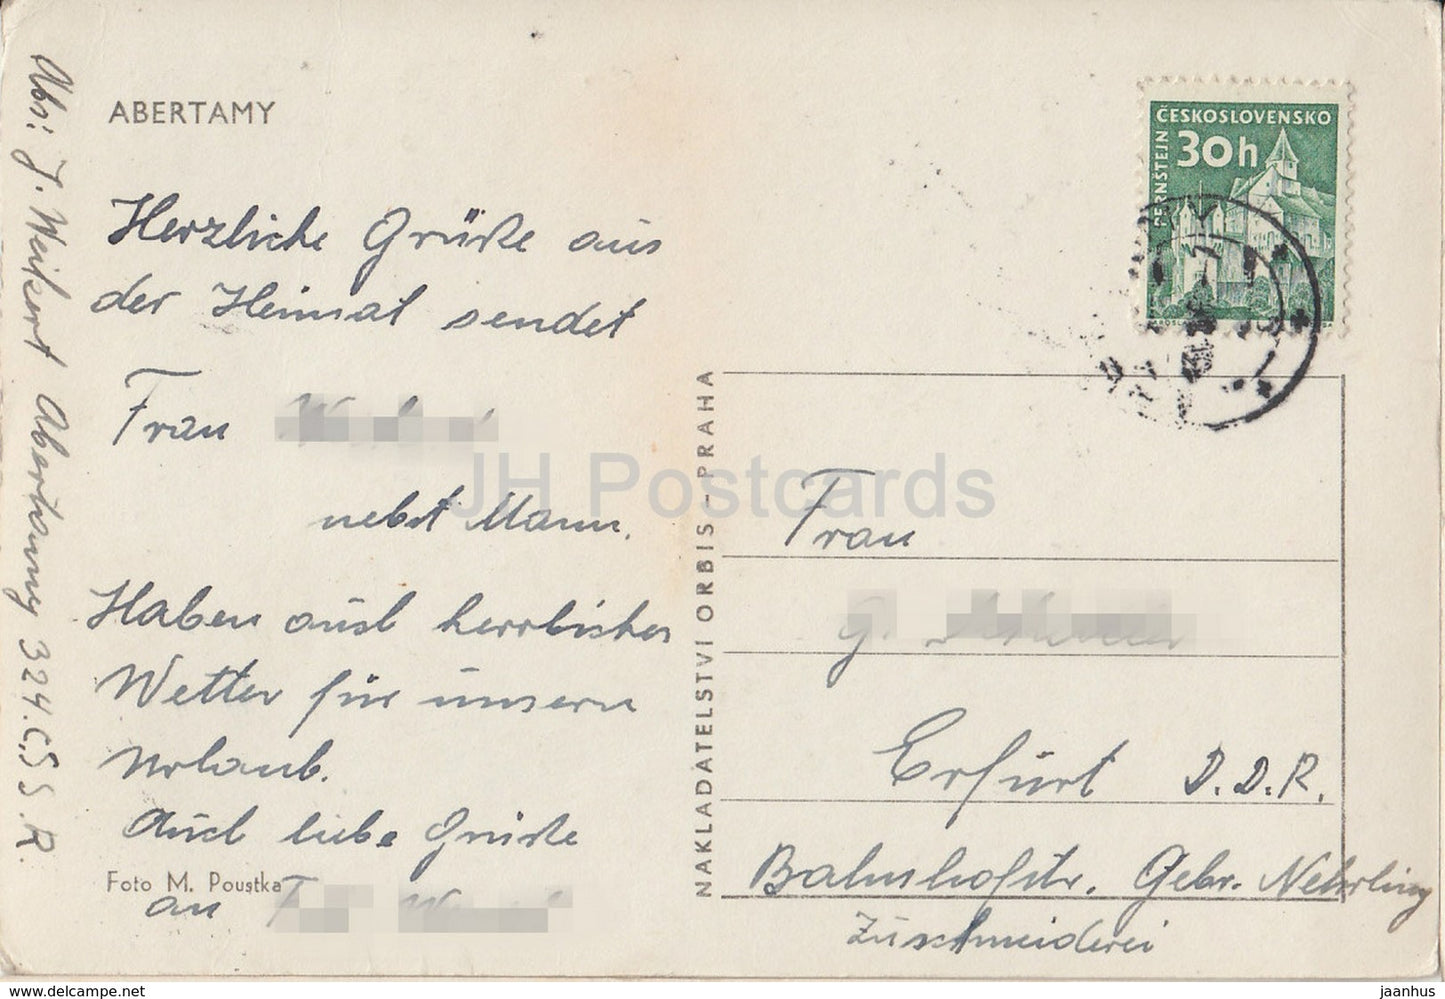 ABERTAMY
Abs: J. Weikert Abertamy 324. Č.S.S.R.
Herzliche Grüße aus
der Heimat sendet
Frau
nebst Mann.
Haben auch herrliches
Wetter für unsern
Urlaub.
Auch liebe Grüße
Foto M. Poustka
an
NAKLADATELSTVÍ ORBIS - PRAHA
ČESKOSLOVENSKO
30h
PERNŠTEJN
JH Postcards
Frau
G.
Erfurt D.D.R.
Bahnhofstr. Gebr. Nehrling
Zuschneiderei
www.delcampe.net
jaanhus